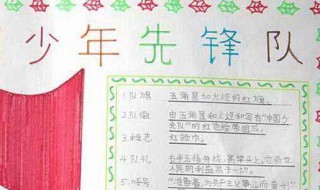 少年先锋队
1.队旗 五角星加火炬的红旗。
2.队徽 由五角星和火炬和写有"中国少
先队"的红色绶带组成。
3.标志 红领巾。
4.队礼 右手五指并拢,高举头上,它表示
人民的利益高于一切。
5.呼号 "准备着,为共产主义事业而奋斗!"